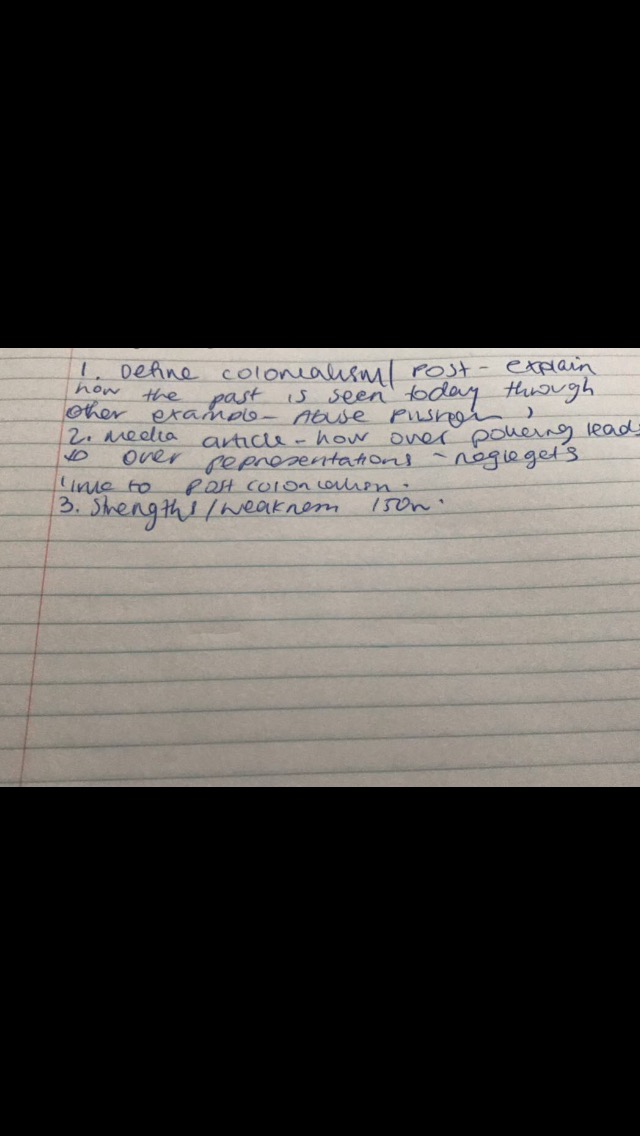 1. Define colonialism/ Post - explain
how the past is seen today through
other example - Abuse
2. Media article - how over policing leads
to over representations - neglegets
link to Post colonialism.
3. Strengths/weakness 150w.